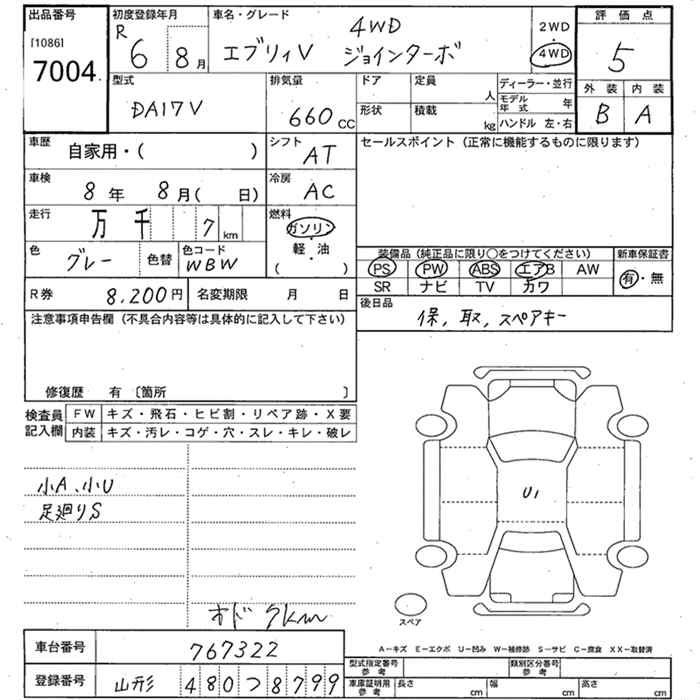 出品番号
[1086]
7004
初度登録年月
R 6 8月
車名・グレード
4WD
エブリィV ジョインターボ
2WD
・
4WD
評価点
5
外装 内装
B A
型式
DA17V
排気量
660cc
ドア
定員
人
形状
積載
kg
ディーラー・並行
モデル年式 年
ハンドル 左・右
車歴
自家用・( )
シフト
AT
セールスポイント（正常に機能するものに限ります）
車検
8年 8月( 日)
冷房
AC
走行
万 千 7 km
燃料
ガソリン
・
軽・油
( )
色
グレー
色替
色コード
WBW
装備品（純正品に限り○をつけてください）
新車保証書
PS PW ABS エアB AW
SR ナビ TV カワ
有・無
R券
8,200円
名変期限 月 日
後日品
保, 取, スペアキー
注意事項申告欄（不具合内容等は具体的に記入して下さい）
修復歴 有〔箇所 〕
検査員記入欄
FW キズ・飛石・ヒビ割・リペア跡・X要
内装 キズ・汚レ・コゲ・穴・スレ・キレ・破レ
小A、小U
足廻りS
U1
オド 7km
スペア
A－キズ E－エクボ U－凹み W－補修跡 S－サビ C－腐食 XX－取替済
車台番号
767322
登録番号
山形 480つ8799
型式指定番号
参考
類別区分番号
参考
車庫証明用
参考
長さ cm
幅 cm
高さ cm